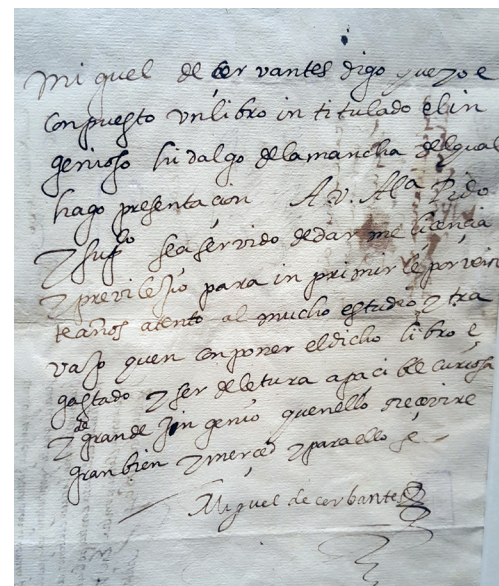 Miguel de cervantes digo que zoe
conpuesto vn libro intitulado el in
genioso hidalgo de la mancha del qual
hago presentacion A v. Al.a Pido
y sup.co sea servido de darme licencia
y previlejio para inprimirle por vein
te años atento al mucho estudio y tra
vajo que en conponer el dicho libro e
gastado y ser de letura apacible curiosa
y de grande injenio que en ello rrecivire
gran bien y merced y para ello &
Miguel de cerbantes